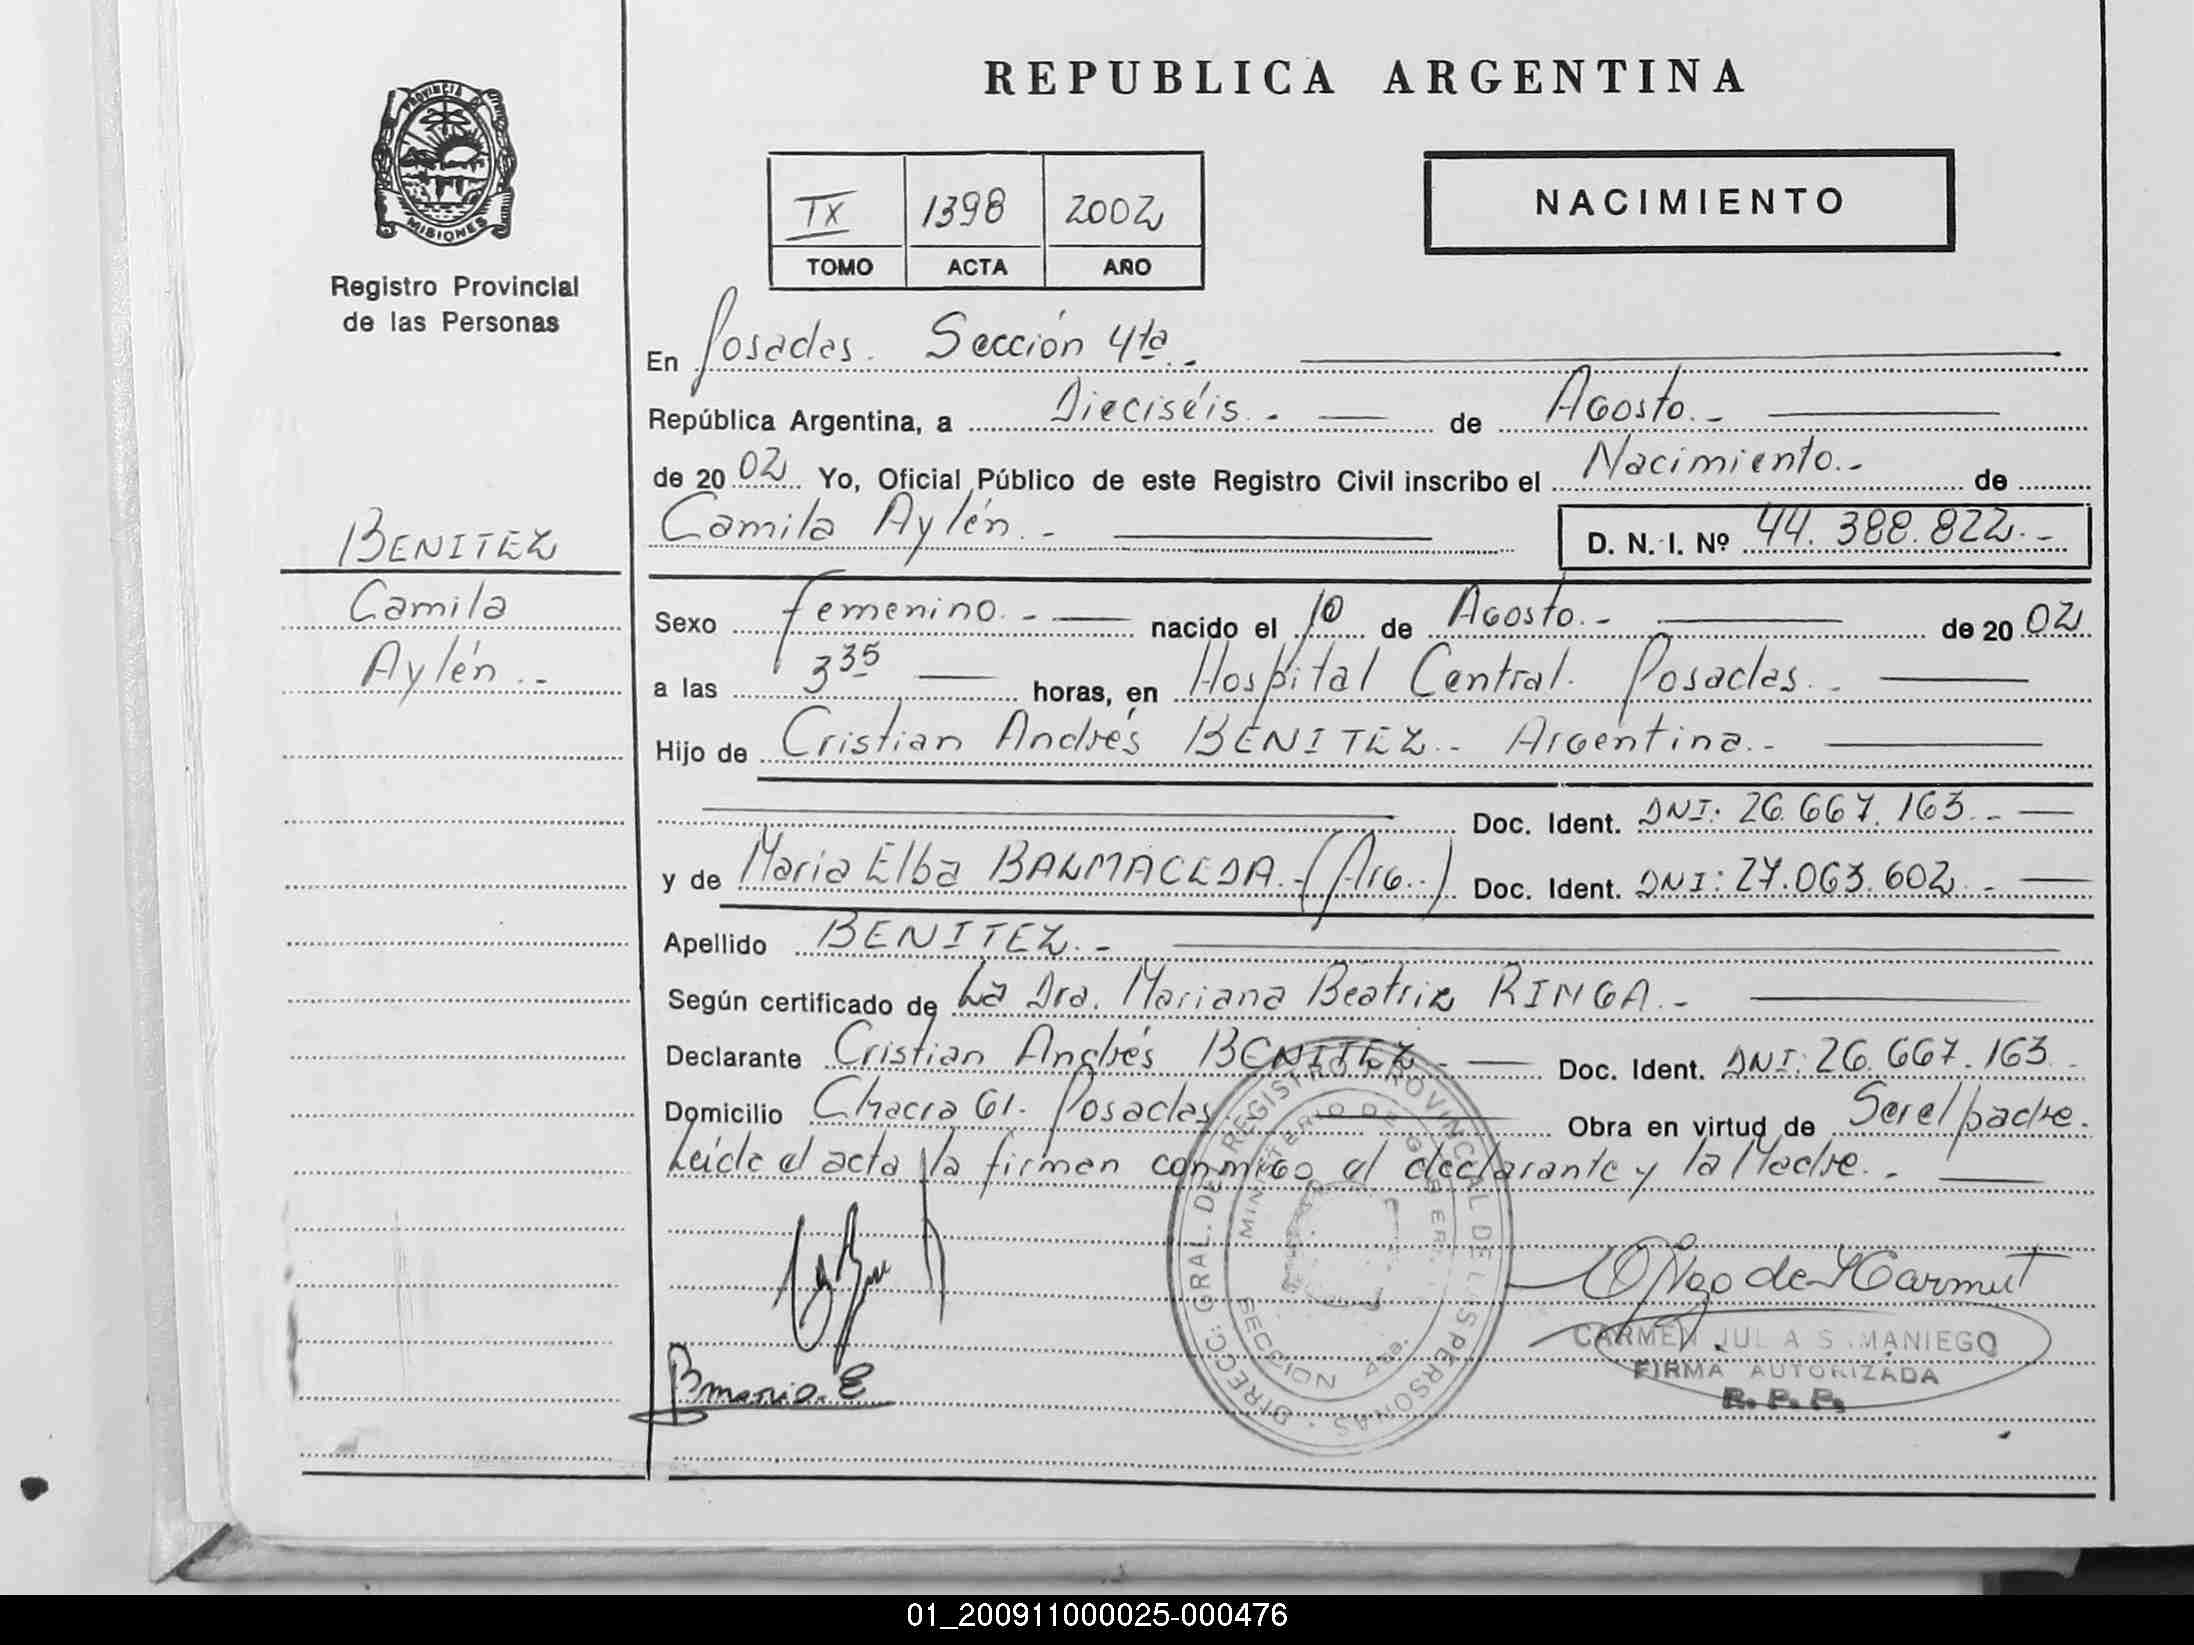 REPUBLICA ARGENTINA
PROVINCIA DE
MISIONES
Registro Provincial
de las Personas
TX 1398 2002
TOMO ACTA AÑO
NACIMIENTO
En Posadas. Sección 4ta.-
República Argentina, a Dieciséis.- de Agosto.-
de 2002 Yo, Oficial Público de este Registro Civil inscribo el Nacimiento.- de
Camila Aylén.- D. N. I. Nº 44.388.822.-
BENITEZ
Camila
Aylén..-
Sexo femenino.- nacido el 10 de Agosto.- de 2002
a las 3 35 horas, en Hospital Central. Posadas.-
Hijo de Cristian Andrés BENITEZ.- Argentina.-
Doc. Ident. DNI: 26.667.163.-
y de Maria Elba BALMACEDA.- (Arg.-) Doc. Ident. DNI: 27.063.602.-
Apellido BENITEZ.-
Según certificado de La Dra. Mariana Beatriz RINGA.-
Declarante Cristian Andrés BENITEZ.- Doc. Ident. DNI: 26.667.163.-
Domicilio Chacra 61. Posadas. Obra en virtud de Ser el padre.
Leída el acta la firman conmigo el declarante y la Madre.-
DIRECC: GRAL. DEL REGISTRO PROVINCIAL DE LAS PERSONAS
MINISTERIO DE GOBIER.
SECCION 4ta.
B maria. E
CARMEN JULIA SAMANIEGO
FIRMA AUTORIZADA
R. P. P.
01_200911000025-000476